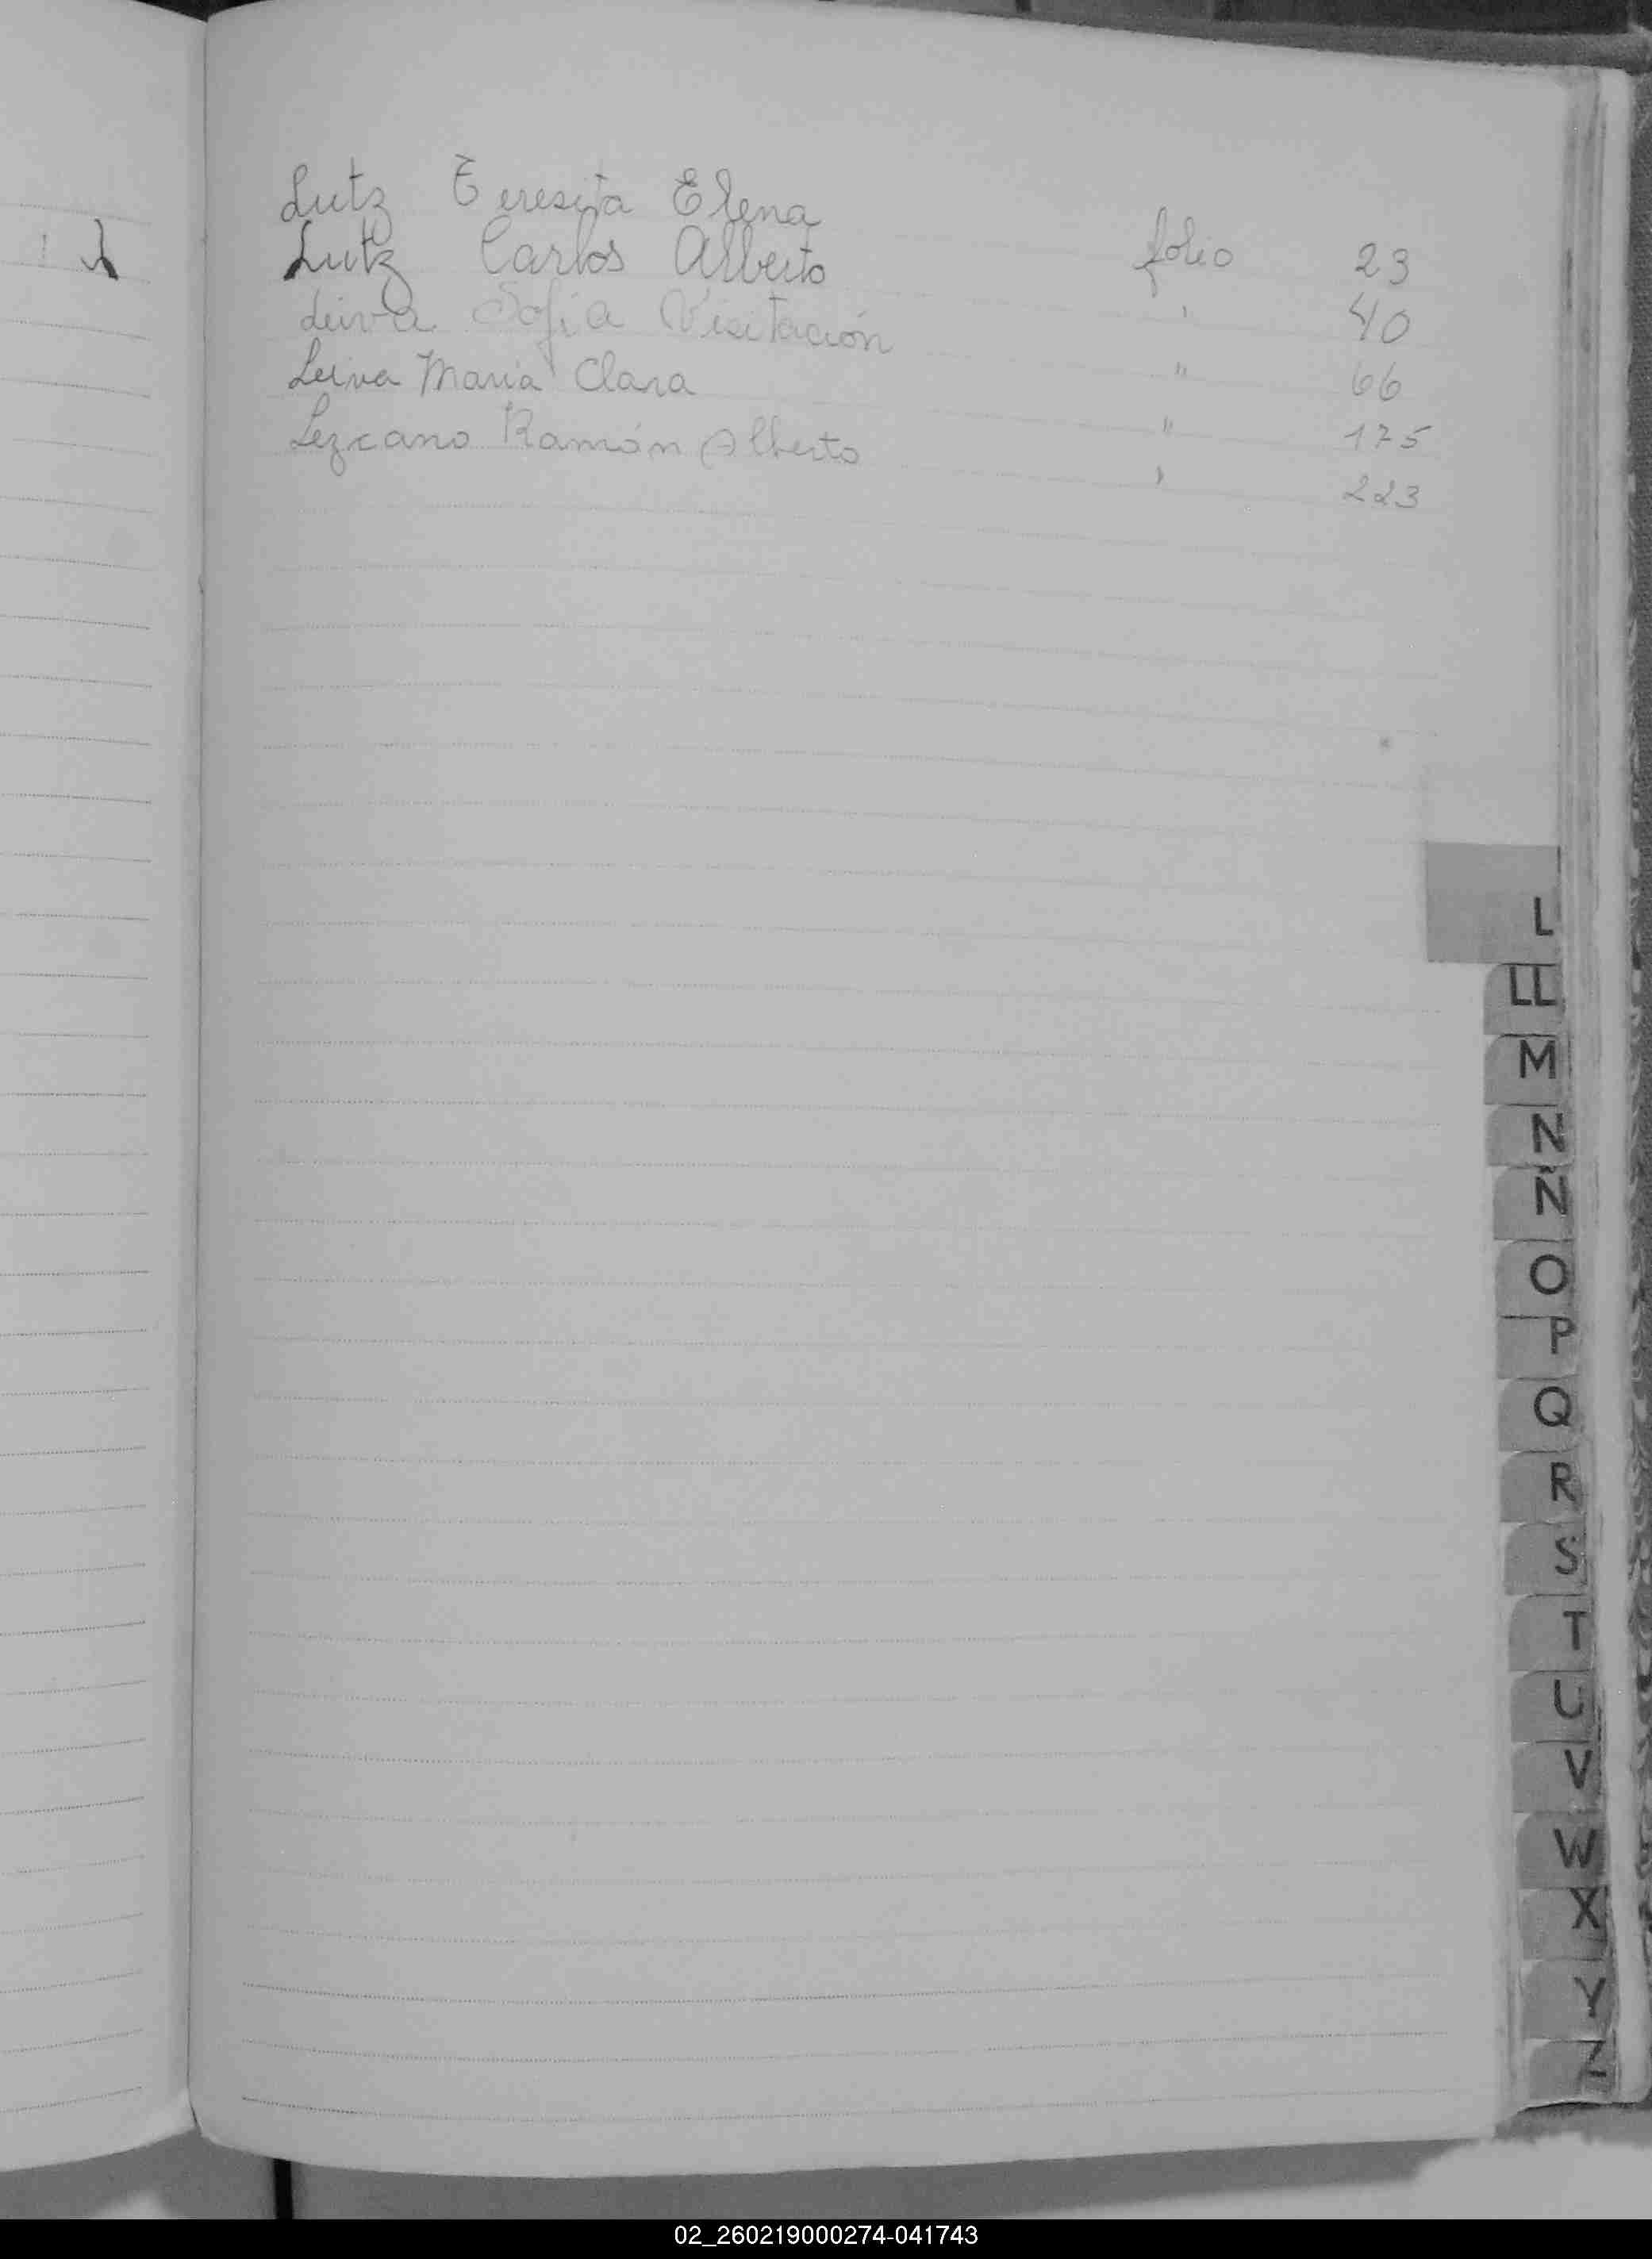 Lutz Teresita Elena folio 23
Lutz Carlos Alberto " 40
Leiva Sofia Visitación " 66
Leiva Maria Clara " 175
Lezcano Ramón Alberto " 223
L
LL
M
N
Ñ
O
P
Q
R
S
T
U
V
W
X
Y
Z
02_260219000274-041743